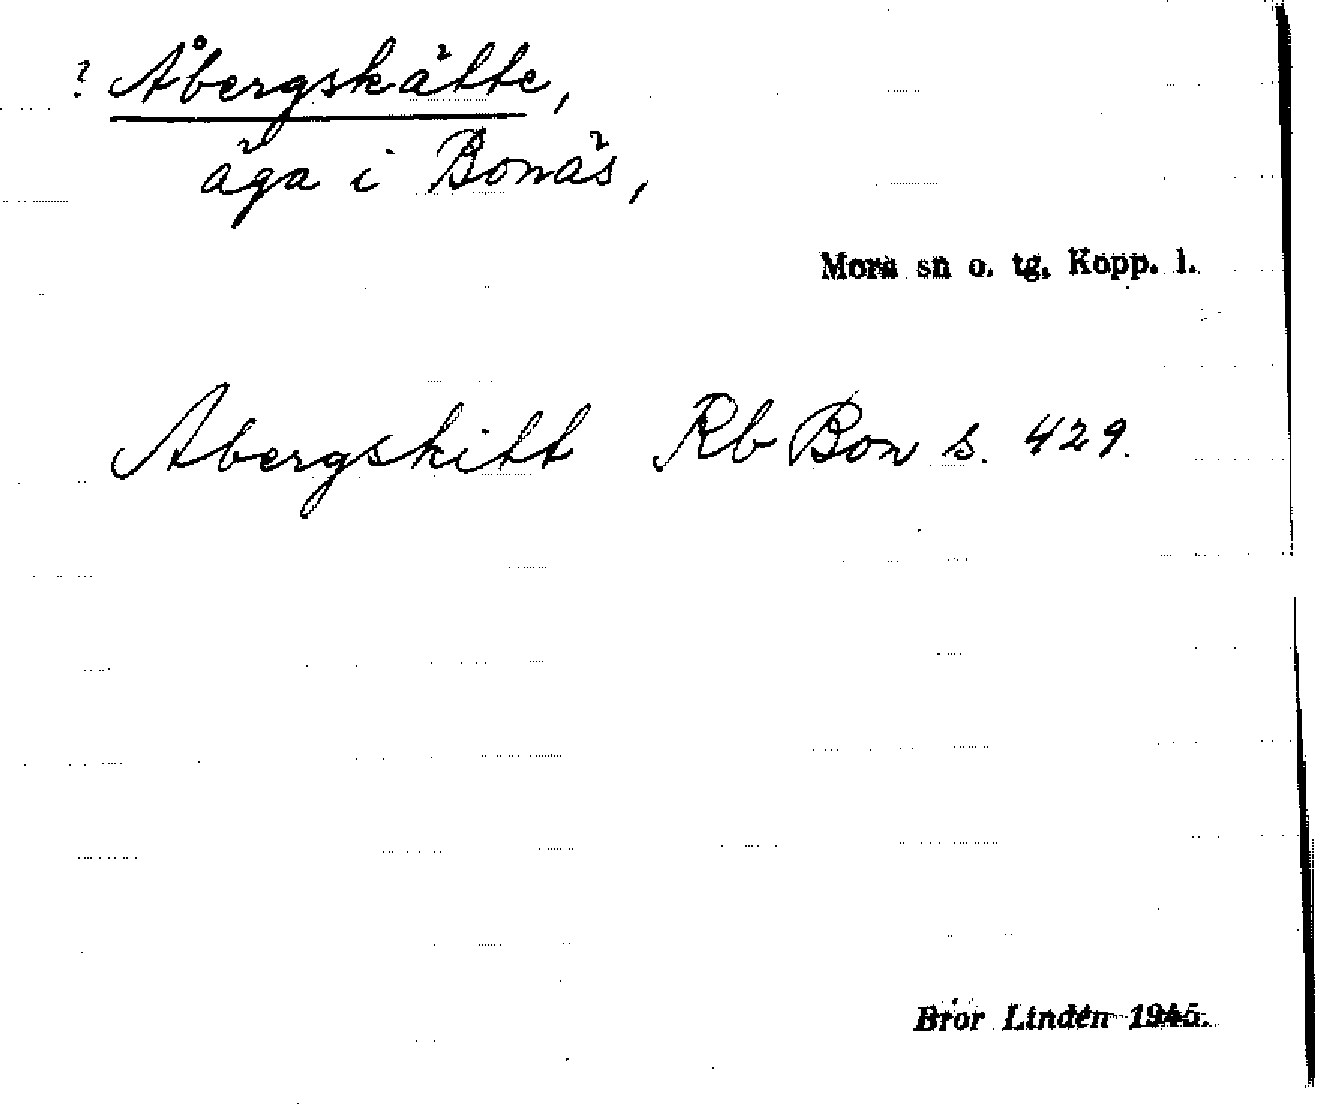 ? Åbergskätte,
äga i Bonäs,
Mora sn o. tg. Kopp. l.
Abergskitt Rb Bon s. 429.
Bror Lindén 1945.